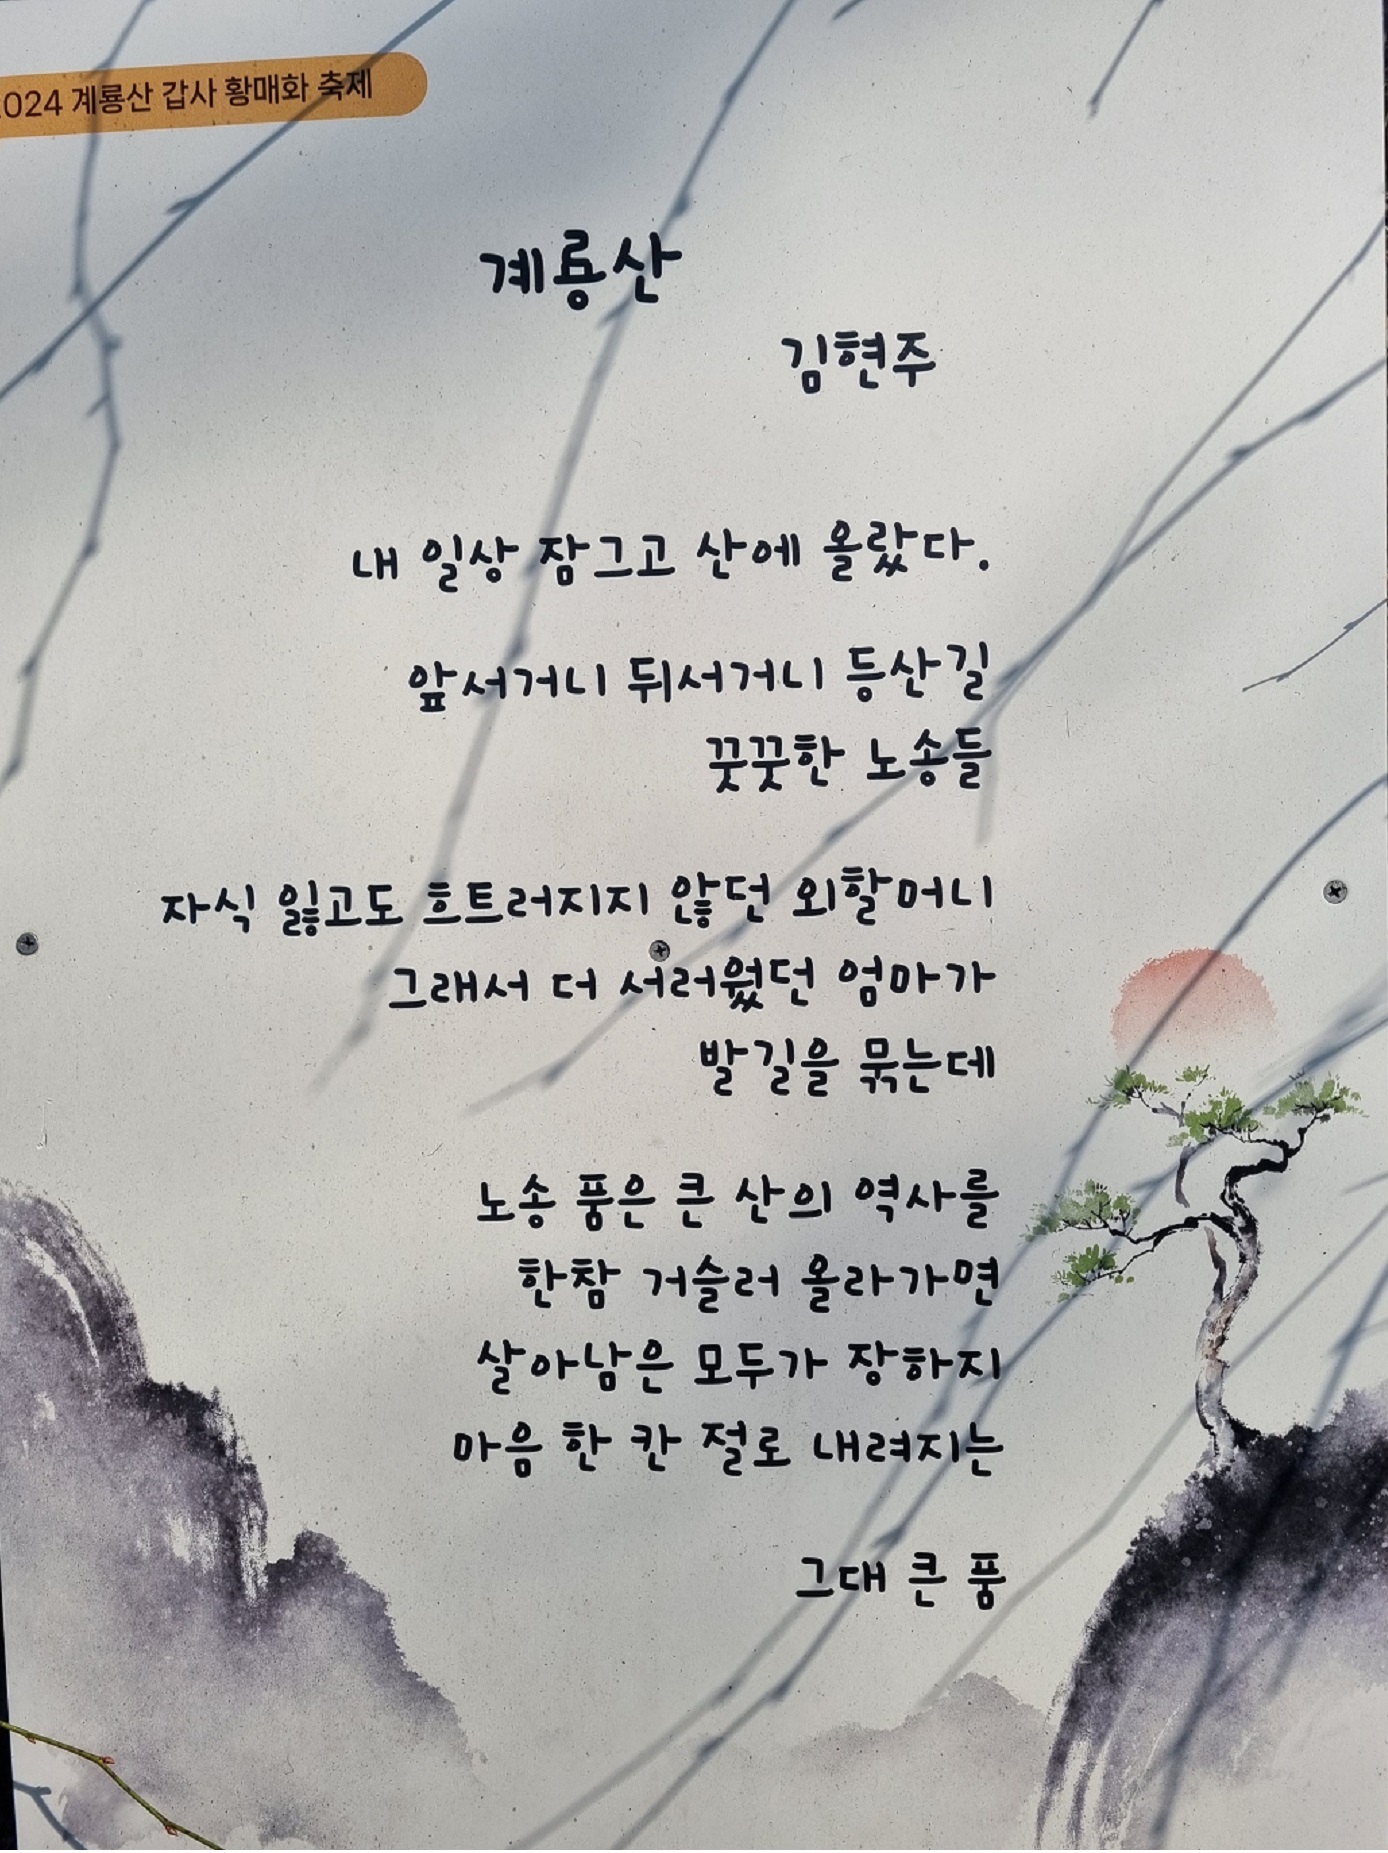 2024 계룡산 갑사 황매화 축제
계룡산
김현주
내 일상 잠그고 산에 올랐다.
앞서거니 뒤서거니 등산길
꿋꿋한 노송들
자식 잃고도 흐트러지지 않던 외할머니
그래서 더 서러웠던 엄마가
발길을 묶는데
노송 품은 큰 산의 역사를
한참 거슬러 올라가면
살아남은 모두가 장하지
마음 한 칸 절로 내려지는
그대 큰 품